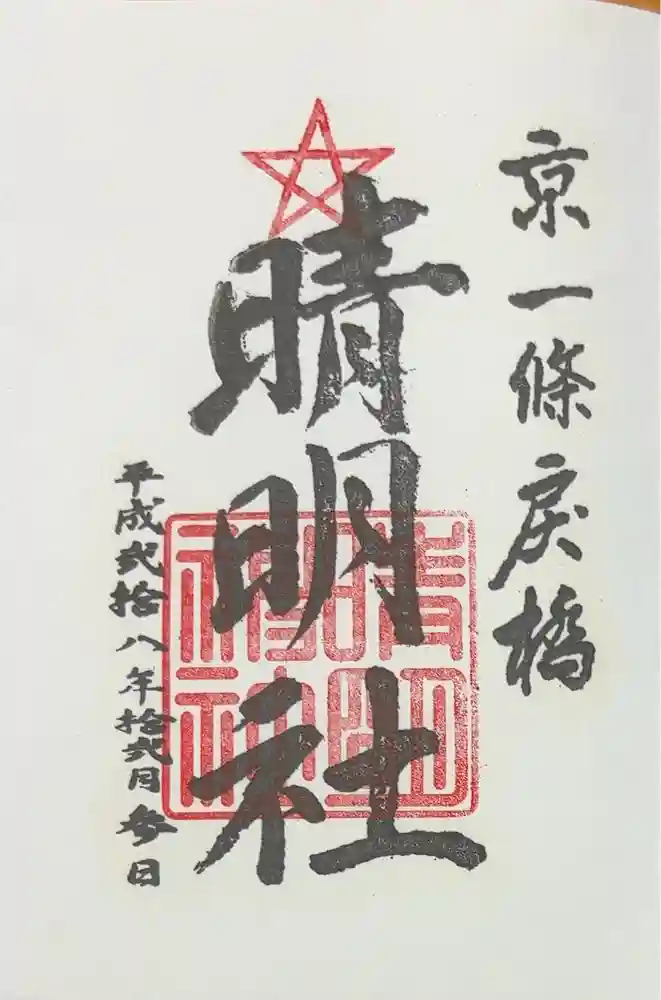 京一條戻橋
晴明社
晴明
神社
平成弐拾八年拾弐月参日